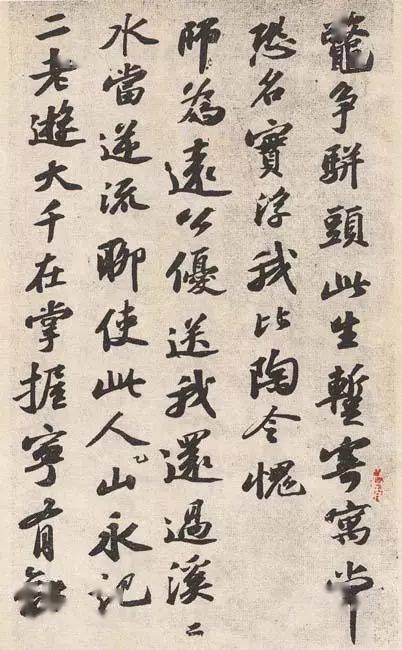 争駢頭此生蹔寄寓
恐名實浮我比陶令愧
師為遠公優送我還過溪〻
水當逆流聊使此人山永記
二老遊大千在掌握寧有